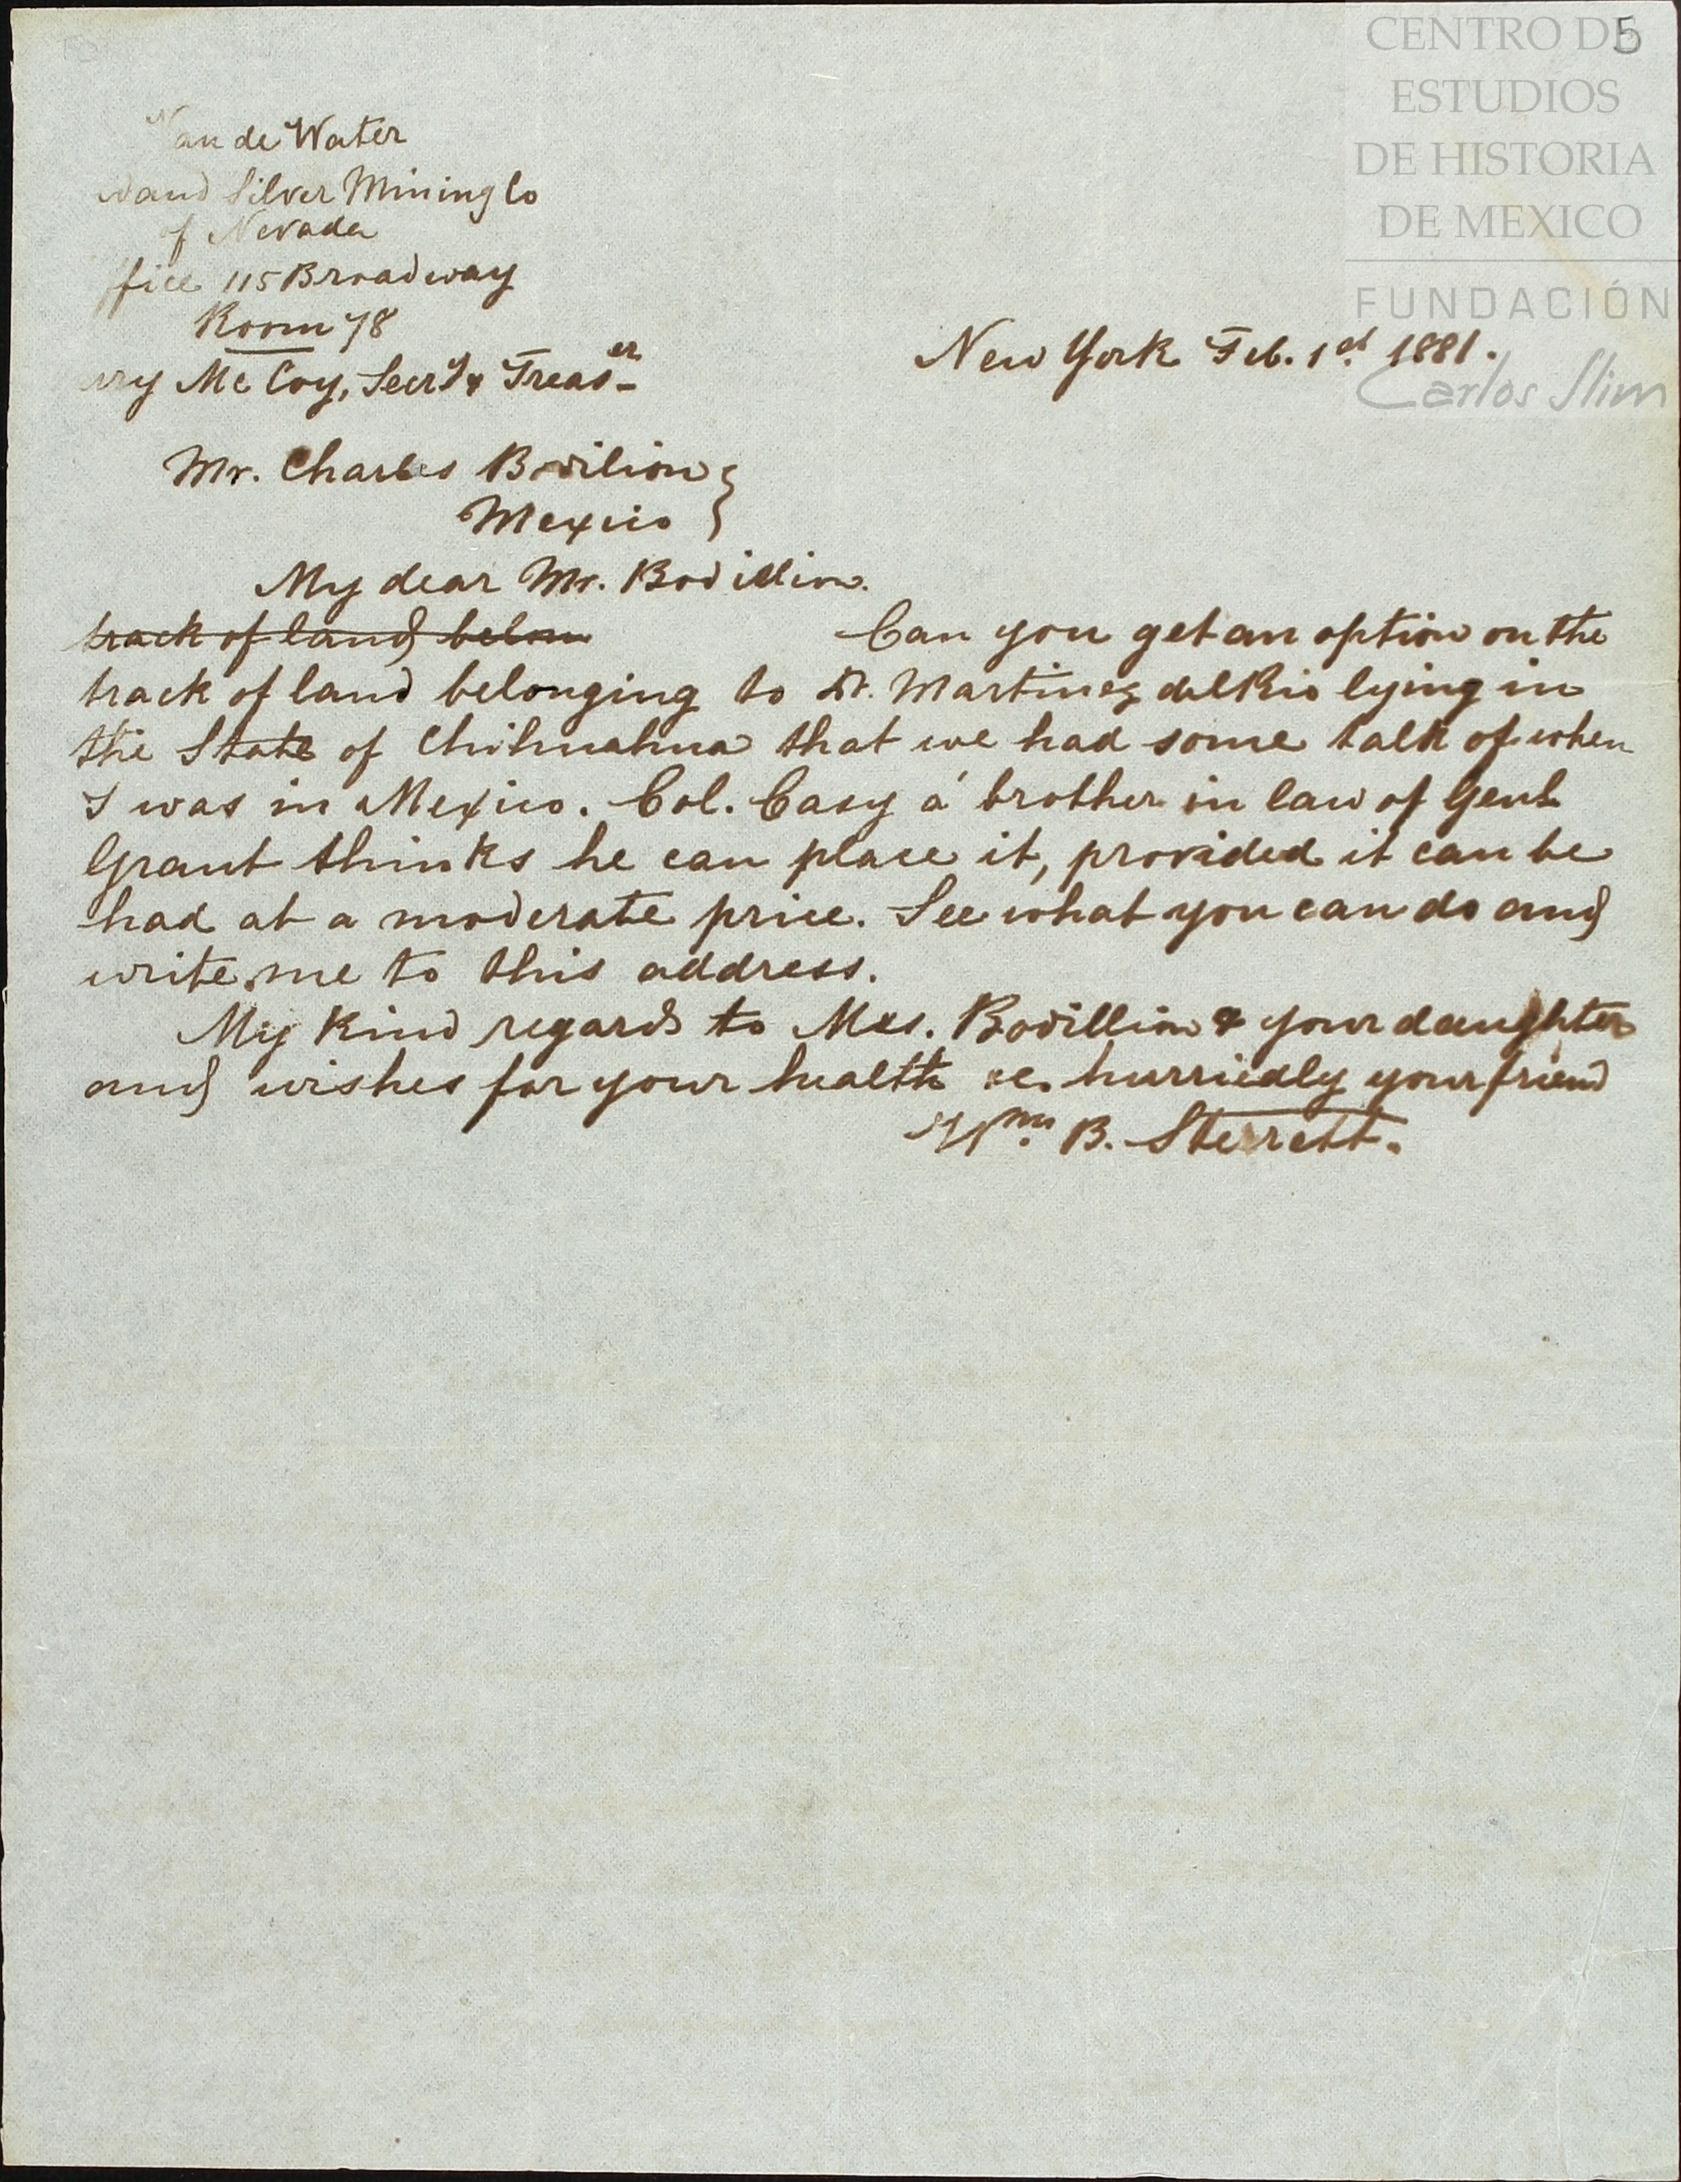 5
CENTRO DE
ESTUDIOS
DE HISTORIA
DE MEXICO
FUNDACIÓN
Carlos Slim
Van de Water
and Silver Mining Co
of Nevada
ffice 115 Broadway
Room 78
McCoy, Secry & Treaser
New York Feb. 1st 1881.
Mr. Charles Bovilion
Mexico
My dear Mr. Bovillion.
track of land belon
Can you get an option on the
track of land belonging to Dr. Martinez del Rio lying in
the State of Chihuahua that we had some talk of when
I was in Mexico. Col. Casy a brother in law of Genl
Grant thinks he can place it, provided it can be
had at a moderate price. See what you can do and
write me to this address.
My kind regards to Mrs. Bovillion & your daughter
and wishes for your health &c. hurriedly your friend
Wm B. Sterrett.